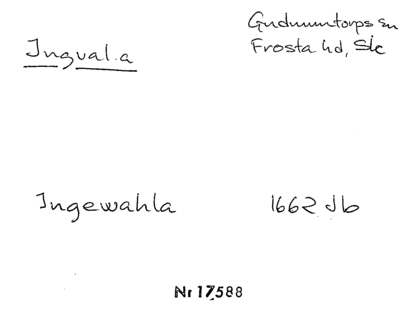 Ingval.a
Gudmuntorps sn
Frosta hd, Sk
Ingewahla 1662 Jb
Nr 17,588